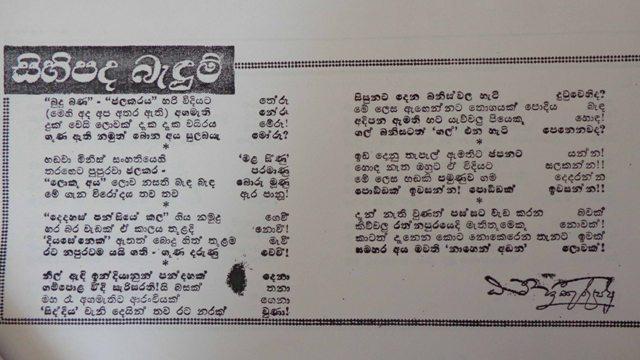 සිහිපද බැඳුම්
"බුදු බණ" - "ජලකරය" හරි විදියට තේරූ
(මෙහි අද අප අතර ඇති) අගමැති නේරු
දුක් වෙයි ලොවක් දැක දැක වයිරය මේරූ!
ගුණ ඇති නමුත් බොන අය සුලබයැ මෝරු?
*
හඬවා මිනිස් සංහතියෙහි 'මළ සිණු'
තරඟෙට පුපුරවා ජලකර - පරමාණු
"ලොකු අය" ලොව නසති බැඳ බැඳ බොරු මුණු
මේ ගැන විරෝදය තව තව ඇර පානු!
*
"දෙදහස් පන්සියේ කල" ගිය නමුදු ගෙවී
හර බර වැඩක් ඒ කාලය තුළදි 'නොවී'!
'දියසෙනෙක්' ඇතත් බොදු හිත් තුළම මැවී
රට නපුරටම යයි ගති - ගුණ දරුණු වෙවී!
*
නිල් ඇඳි ඉන්දියානුන් පන්දහක් දෙනා
ගම්පොළ වීදි සැරිසරති!යි බසක් තනා
මහ රෑ අගමැතිට ආරංචියක් ගෙනා
'සිද්දිය' වැනි දෙයින් තව රට නරක් වුණා!
සිසුනට දෙන බනිස්වල හැටි දුටුවෙහිද?
මේ ලෙස ඇඟෙන්නට තොගයක් පොදිය බැඳ
අදිපන ඇමති හට යැව්වලු පියෙකු හොඳ!
ගල් බනිසටත් 'ගල්' එන හැටි පෙනෙනවද?
*
ඉඩ දෙනු තැපැල් ඇමතිට ජපනට යන්න!
හොඳ නැත ඔහුට ඒ විදියට සලකන්න!!
මේ ලෙස හඬකි පමුණුව ගම දෙදරන්න
පොඩ්ඩක් ඉවසන්න! පොඩ්ඩක් ඉවසන්න!!
*
දැන් නැති වුණත් පස්සට වැඩ කරන බවක්
කිව්වලු රත්නපුරයෙදි මැතිතුමෙකු නොවක්!
කාටත් දැනෙන කොට නොකෙරෙන තැනට ඉවක්
සමහර අය මවති 'නාගෙන් අඩන' ලොවක්!